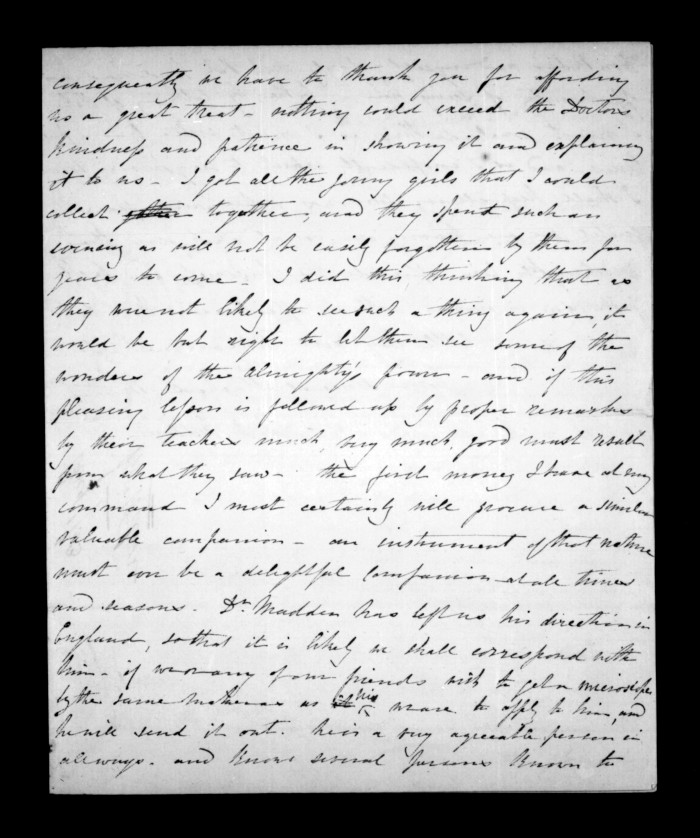 consequently we have to thank you for affording
us a great treat - nothing could exceed the Doctors
kindness and patience in showing it and explaining
it to us - I got all the young girls that I could
collect together, and they spent such an
evening as will not be easily forgotten by them for
years to come - I did this thinking that as
they were not likely to see such a thing again, it
would be but right to let them see some of the
wonders of the Almighty's power - and if this
pleasing lesson is followed up by proper remarks
by their teachers much, very much, good must result
from what they saw - the first money I have at my
command I most certainly will procure a similar
valuable companion - an instrument of that nature
must ever be a delightful companion at all times
and seasons. Dr. Madden has left us his direction in
England, so that it is likely we shall correspond with
him - if we or any of our friends wish to get a microscope
by the same maker as his we are to apply to him, and
he will send it out. he is a very agreeable person in
all ways. and knows several persons known to